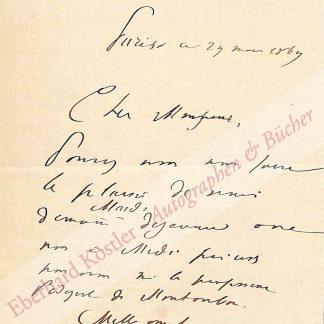 Paris ce 29 mars 1869
Cher Monsieur,
Pouvez vous nous faire
le plaisir de venir
Mardi
déjeuner avec
nous à Midi précises
nous
de Montauban.
Mille
Eberhard Köstler Autographen & Bücher